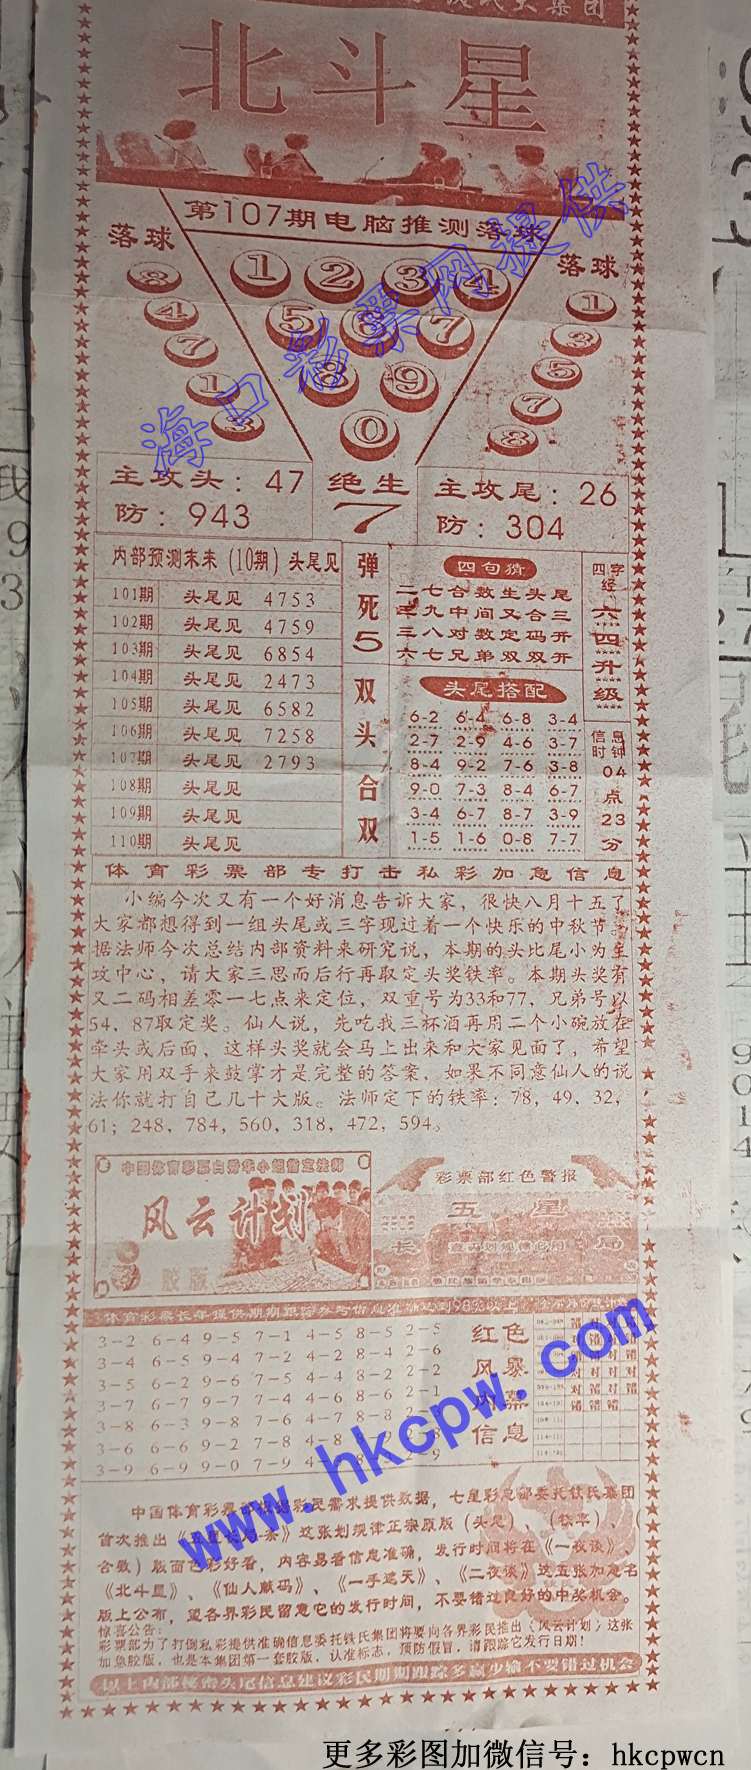 大集团
北斗星
第107期电脑推测落球
落球
8
4
7
1
3
1 2 3 4
5 6 7
8 9
0
落球
1
3
5
7
8
主攻头：47
防：943
绝生
7
主攻尾：26
防：304
内部预测未来 (10期) 头尾见
101期 头尾见 4753
102期 头尾见 4759
103期 头尾见 6854
104期 头尾见 2473
105期 头尾见 6582
106期 头尾见 7258
107期 头尾见 2793
108期 头尾见
109期 头尾见
110期 头尾见
弹死5
双头
合双
四句猜
二七合数生头尾
九中间又合三
三八对数定码开
六七兄弟双双开
头尾搭配
6-2 6-4 6-8 3-4
2-7 2-9 4-6 3-7
8-4 9-2 7-6 3-8
9-0 7-3 8-4 6-7
3-4 6-7 8-7 3-9
1-5 1-6 0-8 7-7
四字经
六四升级
信息时钟
04点23分
体育彩票部专打击私彩加急信息
小编今次又有一个好消息告诉大家，很快八月十五了
大家都想得到一组头尾或三字现过着一个快乐的中秋节
据法师今次总结内部资料来研究说，本期的头比尾小为主
攻中心，请大家三思而后行再取定头奖铁率。本期头奖有
又二码相差零一七点来定位，双重号为33和77，兄弟号以
54，87取定奖。仙人说，先吃我三杯酒再用二个小碗放在
牵头或后面，这样头奖就会马上出来和大家见面了，希望
大家用双手来鼓掌才是完整的答案，如果不同意仙人的说
法你就打自己几十大版。法师定下的铁率：78，49，32，
61；248，784，560，318，472，594。
风云计划
胶版
彩票部红色警报
五星
长 局
3-2 6-4 9-5 7-1 4-5 8-5 2-5
3-4 6-5 9-4 7-2 4-2 8-4 2-6
3-5 6-2 9-6 7-5 4-4 8-2 2-2
3-7 6-7 9-7 7-4 4-6 8-6 2-1
3-8 6-3 9-8 7-6 4-7 8-8
3-6 6-6 9-2 7-8
3-9 6-9 9-0 7-9
红色
风暴
内幕
信息
中国体育彩票部根据彩民需求提供数据，七星彩总部委托铁氏集团
首次推出《五星长局条》这张划规律正宗原版（头尾）、（铁率）、（
合数）版面色彩好看，内容易看信息准确，发行时间将在《一秋谈》、
《北斗星》、《仙人献码》、《一手遮天》、《二夜谈》这五张加急名
版上公布，望各界彩民留意它的发行时间，不要错过良好的中奖机会。
惊喜公告：
彩票部为了打倒私彩提供准确信息委托铁氏集团将要向各界彩民推出《风云计划》这张
加急胶版，也是本集团第一套胶版，认准标志，预防假冒，请跟踪它发行日期！
以上内部秘密头尾信息建议彩民期期跟踪多赢少输不要错过机会
海口彩票网提供
www.hkcpw.com
更多彩图加微信号：hkcpwcn